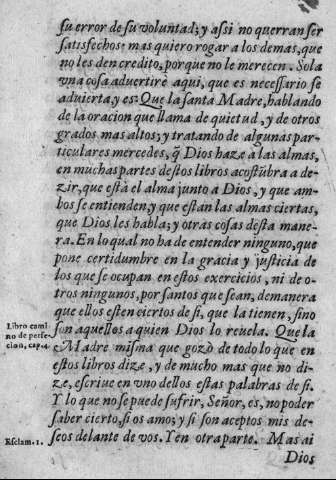 su error de su voluntad; y assi no querran ser
satisfechos: mas quiero rogar a los demas, que
no les den credito, porque no le merecen. Sola
vna cosa advertire aqui, que es necessario se
advierta, y es: Que la santa Madre, hablando
de la oracion que llama de quietud, y de otros
grados mas altos; y tratando de algunas par-
ticulares mercedes, q̃ Dios haze a las almas,
en muchas partes destos libros acostũbra a de-
zir, que està el alma junto a Dios, y que am-
bos se entienden; y que estan las almas ciertas,
que Dios les habla; y otras cosas desta mane-
ra. En lo qual no ha de entender ninguno, que
pone certidumbre en la gracia y justicia de
los que se ocupan en estos exercicios, ni de o-
tros ningunos, por santos que sean, de manera
que ellos esten ciertos de si, que la tienen, sino
son aquellos a quien Dios lo reuela. Que la
Madre misma que gozò de todo lo que en
estos libros dize, y de mucho mas que no di-
ze, escriue en vno dellos estas palabras de si.
Y lo que no se puede sufrir, Señor, es, no poder
saber cierto, si os amo; y si son aceptos mis de-
seos delante de vos. Y en otra parte. Mas ai
Dios
Libro cami
no de perfe-
cion, cap. 4.
Esclam. 1.